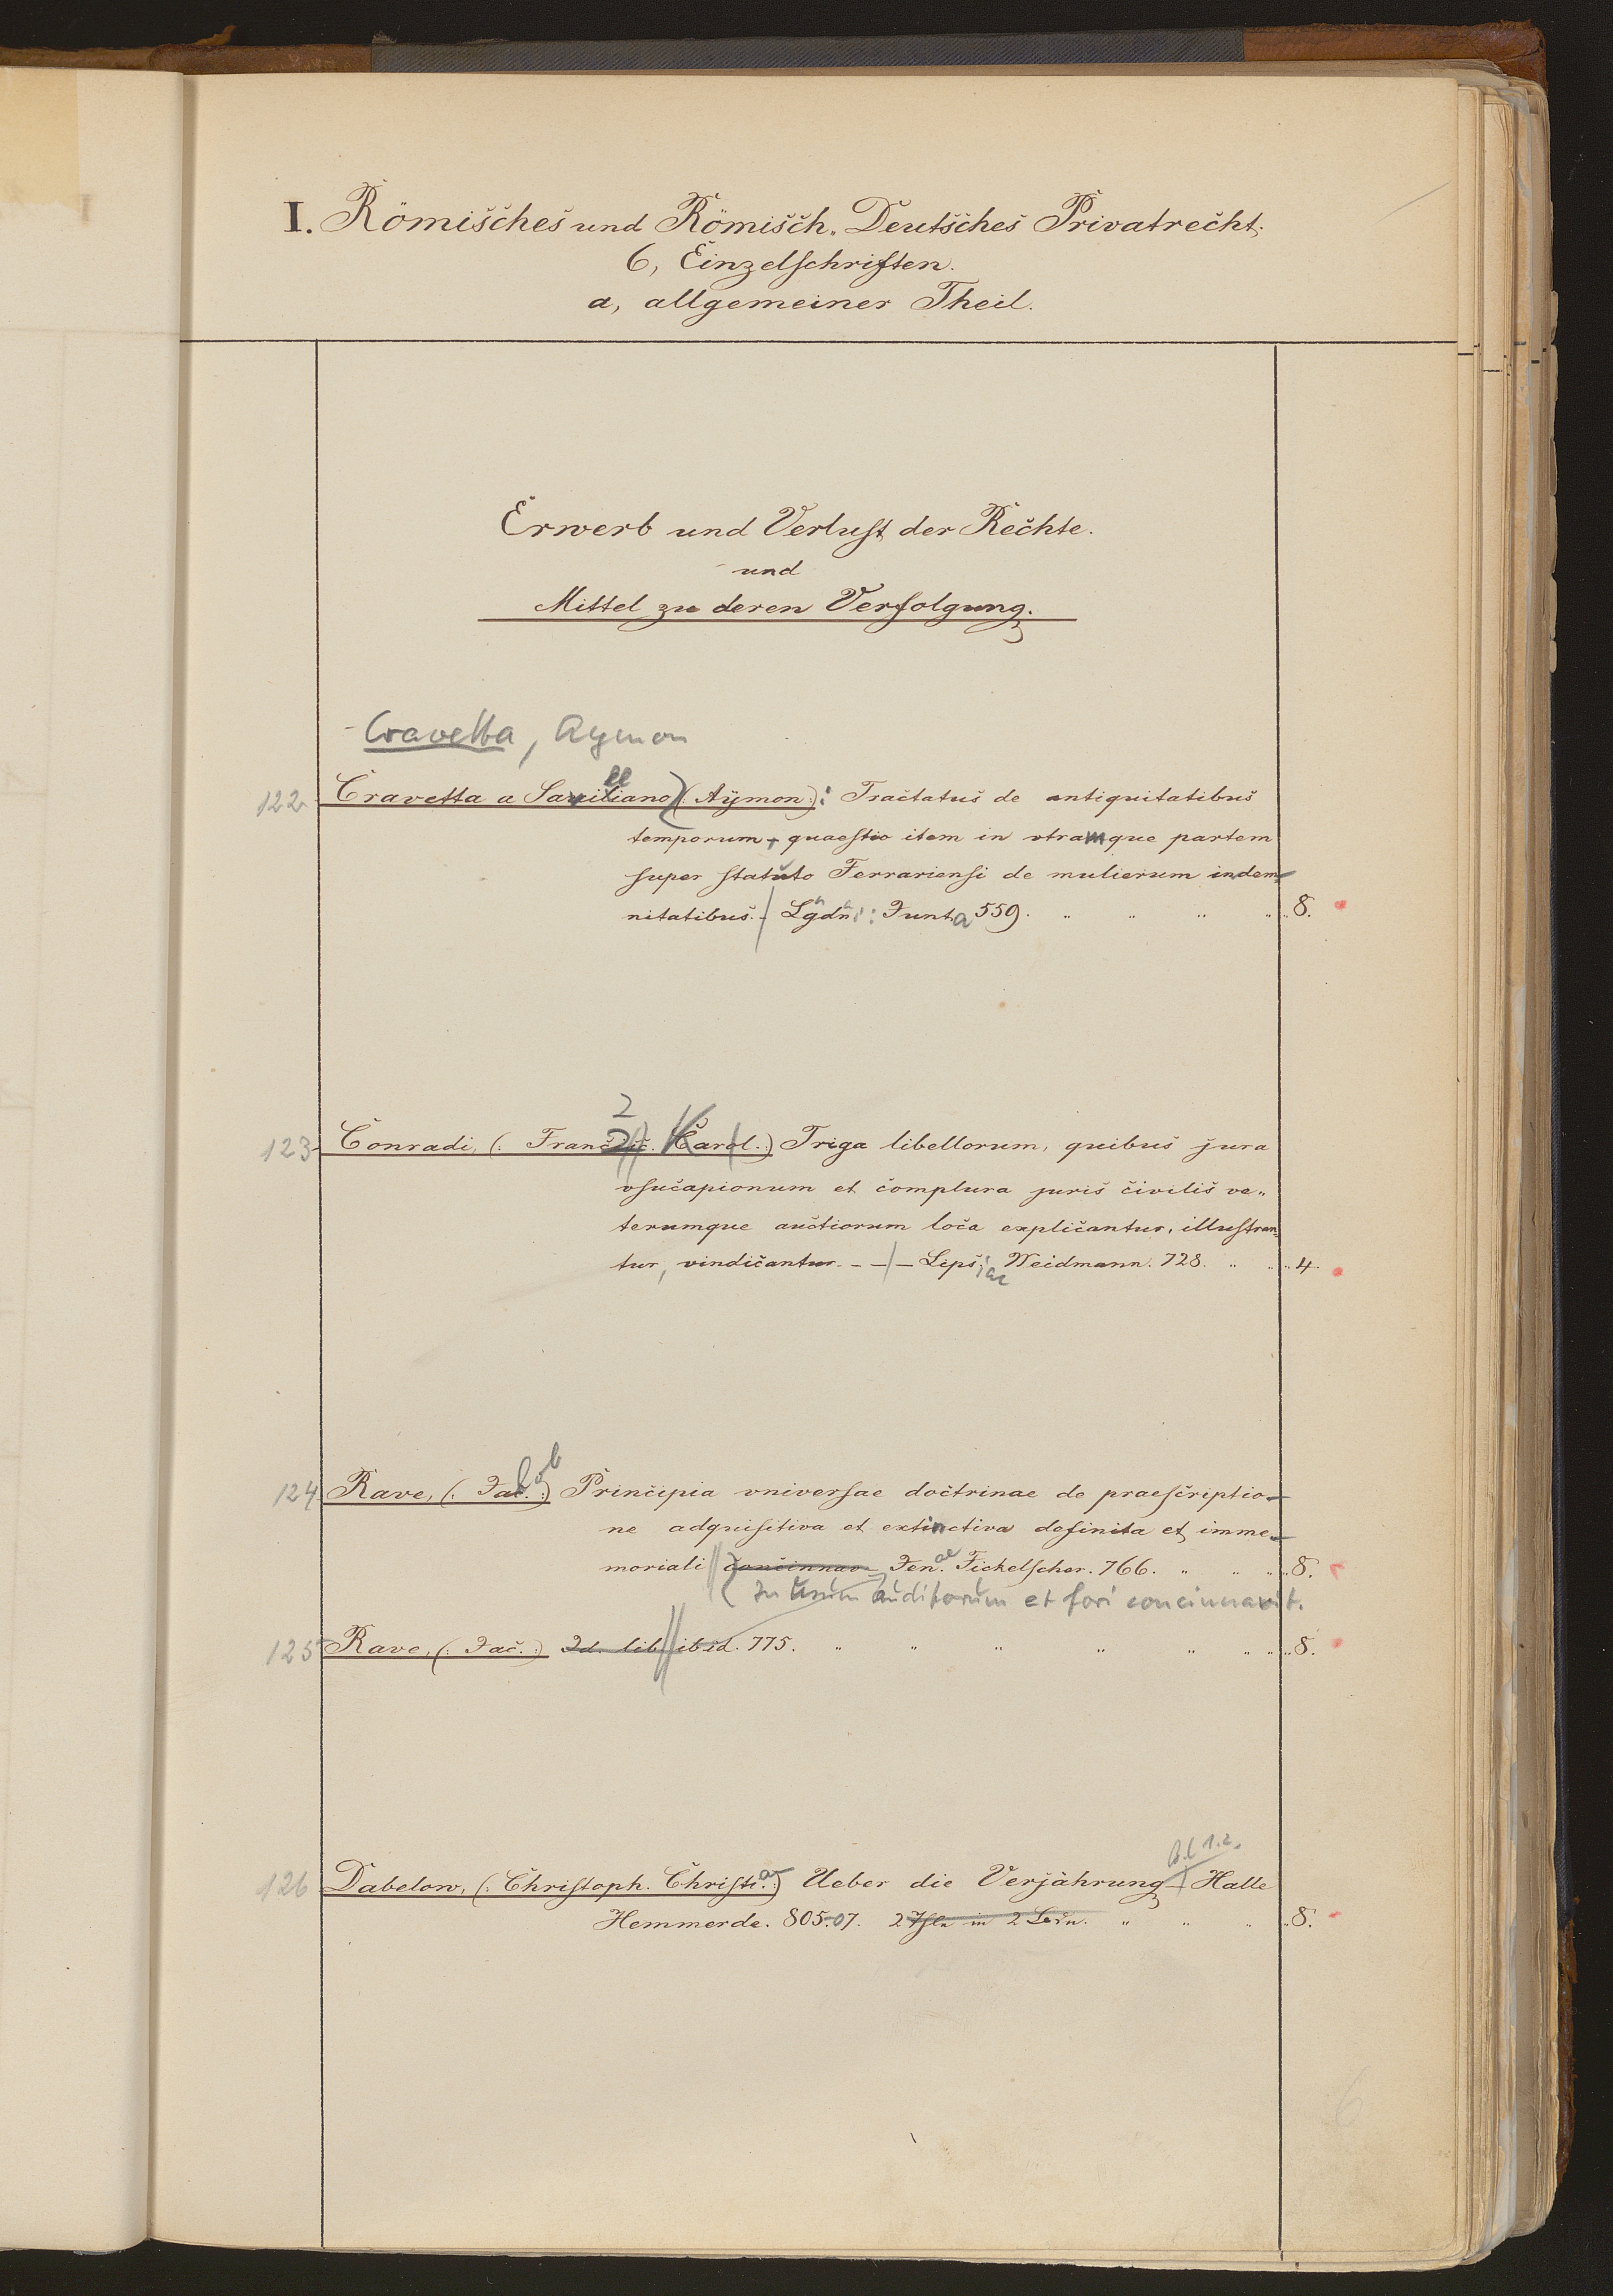 I. Römisches und Römisch-Deutsches Privatrecht.
6, Einzelschriften.
a, allgemeiner Theil.
Erwerb und Verlust der Rechte.
und
Mittel zu deren Verfolgung.
Cravetta, Aymon
122 Cravetta a Savilliano (: Aymon :): Tractatus de antiquitatibus
temporum, quaestio item in vtramque partem
super statuto Ferrariensi de mulierum indem-
nitatibus. - Lgdni: Junta 559. 8.
2
123 Conradi, (: Francisc. Carol. :) Triga libellorum, quibus jura
vsucapionum et complura juris civilis ve-
terumque auctiorum loca explicantur, illustran-
tur, vindicantur. - - - Lipsiae Weidmann. 728. 4.
124 Rave, (: Jac. :) Principia vniversae doctrinae de praescriptio-
ne adquisitiva et extinctiva definita et imme-
moriali concinnav. Jenae Fickelscher. 766. 8.
In usum auditorum et fori concinnavit.
125 Rave, (: Jac. :) Id. lib. ibid. 775. 8.
Bd. 1.2.
126 Dabelow, (: Christoph. Christi. :) Ueber die Verjährung - Halle
Hemmerde. 805-07. 2 Thle in 2 8.
6